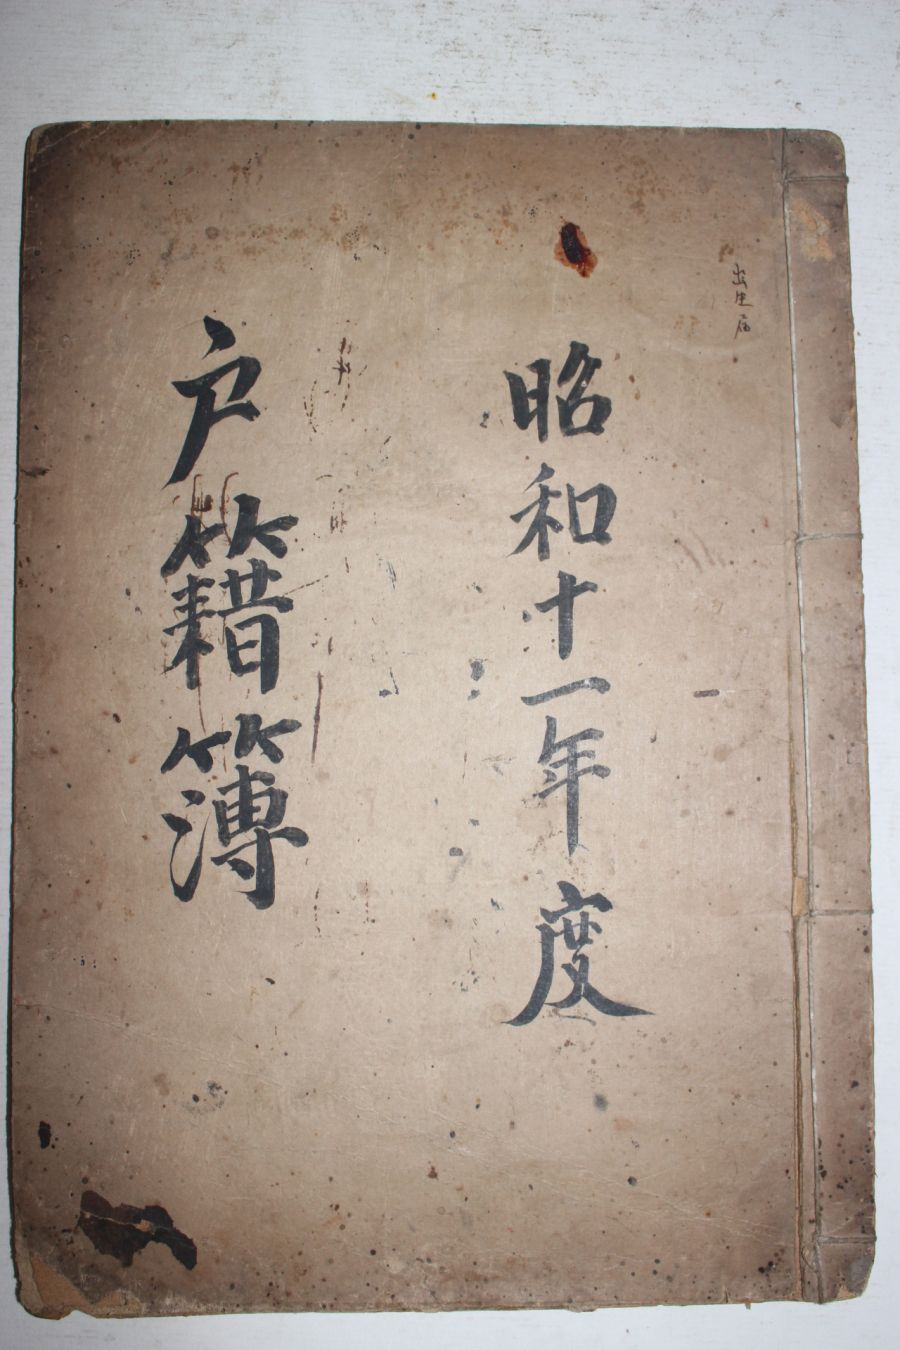 出生届
昭和十一年度
戸籍簿